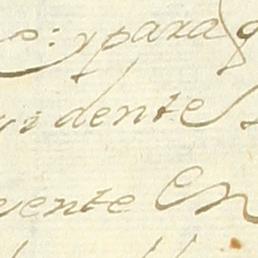 o: y para q
vidente
vente En